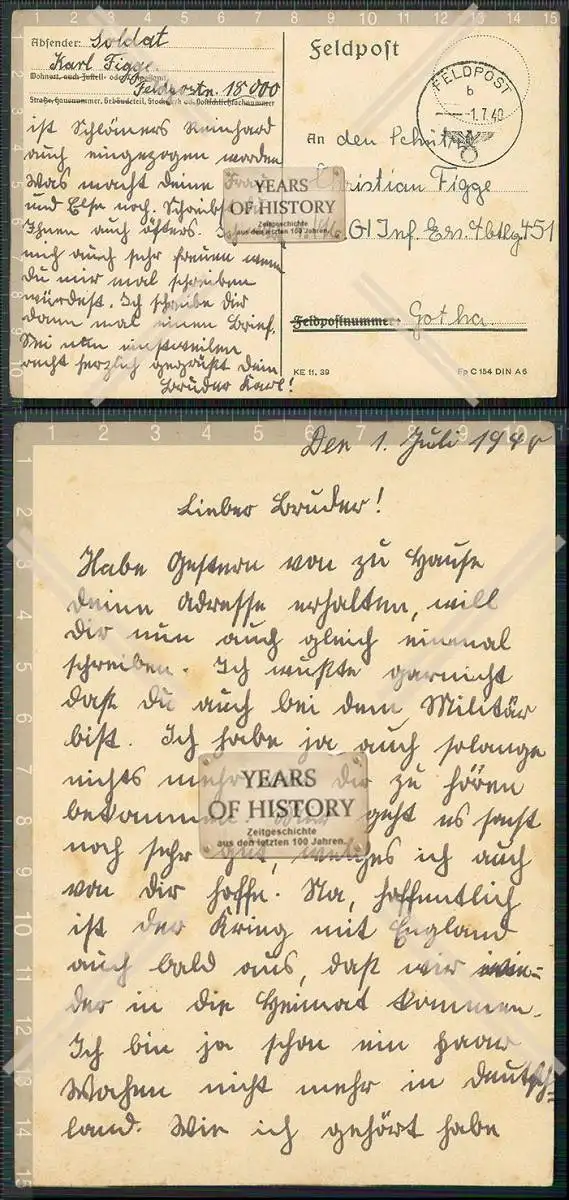 Absender: Soldat
Karl Figge.
Wohnort, auch Zustell- oder Leitpostamt
Feldpostn. 18000
Straße, Hausnummer, Gebäudeteil, Stockwerk od. Postschließfachnummer
ist Schlömers Reinhard
auch eingezogen worden
Was macht deine Frau
und Else noch. Schreibst
Ihnen auch öfters.
mich auch sehr freuen wenn
du mir mal schreiben
würdest. Ich schreibe dir
dann mal einen Brief.
Sei nun einstweilen
recht herzlich gegrüßt dein
Bruder Karl!
Feldpost
FELDPOST
b
-1.7.40
An den Schütz
Christian Figge
GI Inf. Ers. Abtlg 451
Feldpostnummer: Gotha.
KE 11. 39
Fp C 154 DIN A 6
YEARS
OF HISTORY
Zeitgeschichte
aus den letzten 100 Jahren.
Den 1. Juli 1940
Lieber Bruder!
Habe Gestern von zu Hause
deine Adresse erhalten, will
dir nun auch gleich einmal
schreiben. Ich wußte garnicht
daß du auch bei dem Militär
bist. Ich habe ja auch solange
nichts mehr von dir zu hören
bekommen. geht es sonst
noch sehr gut, welches ich auch
von dir hoffe. Na, hoffentlich
ist der Krieg mit England
auch bald aus, daß wir wie-
der in die Heimat kommen.
Ich bin ja schon ein paar
Wochen nicht mehr in Deutsch-
land. Wie ich gehört habe
YEARS
OF HISTORY
Zeitgeschichte
aus den letzten 100 Jahren.